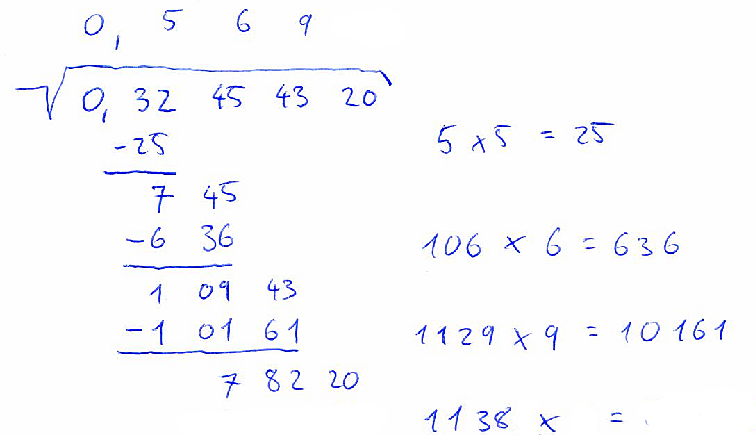 0, 5 6 9
√0, 32 45 43 20
-25
5 x 5 = 25
7 45
-6 36
106 x 6 = 636
1 09 43
-1 01 61
1129 x 9 = 10161
7 82 20
1138 x =